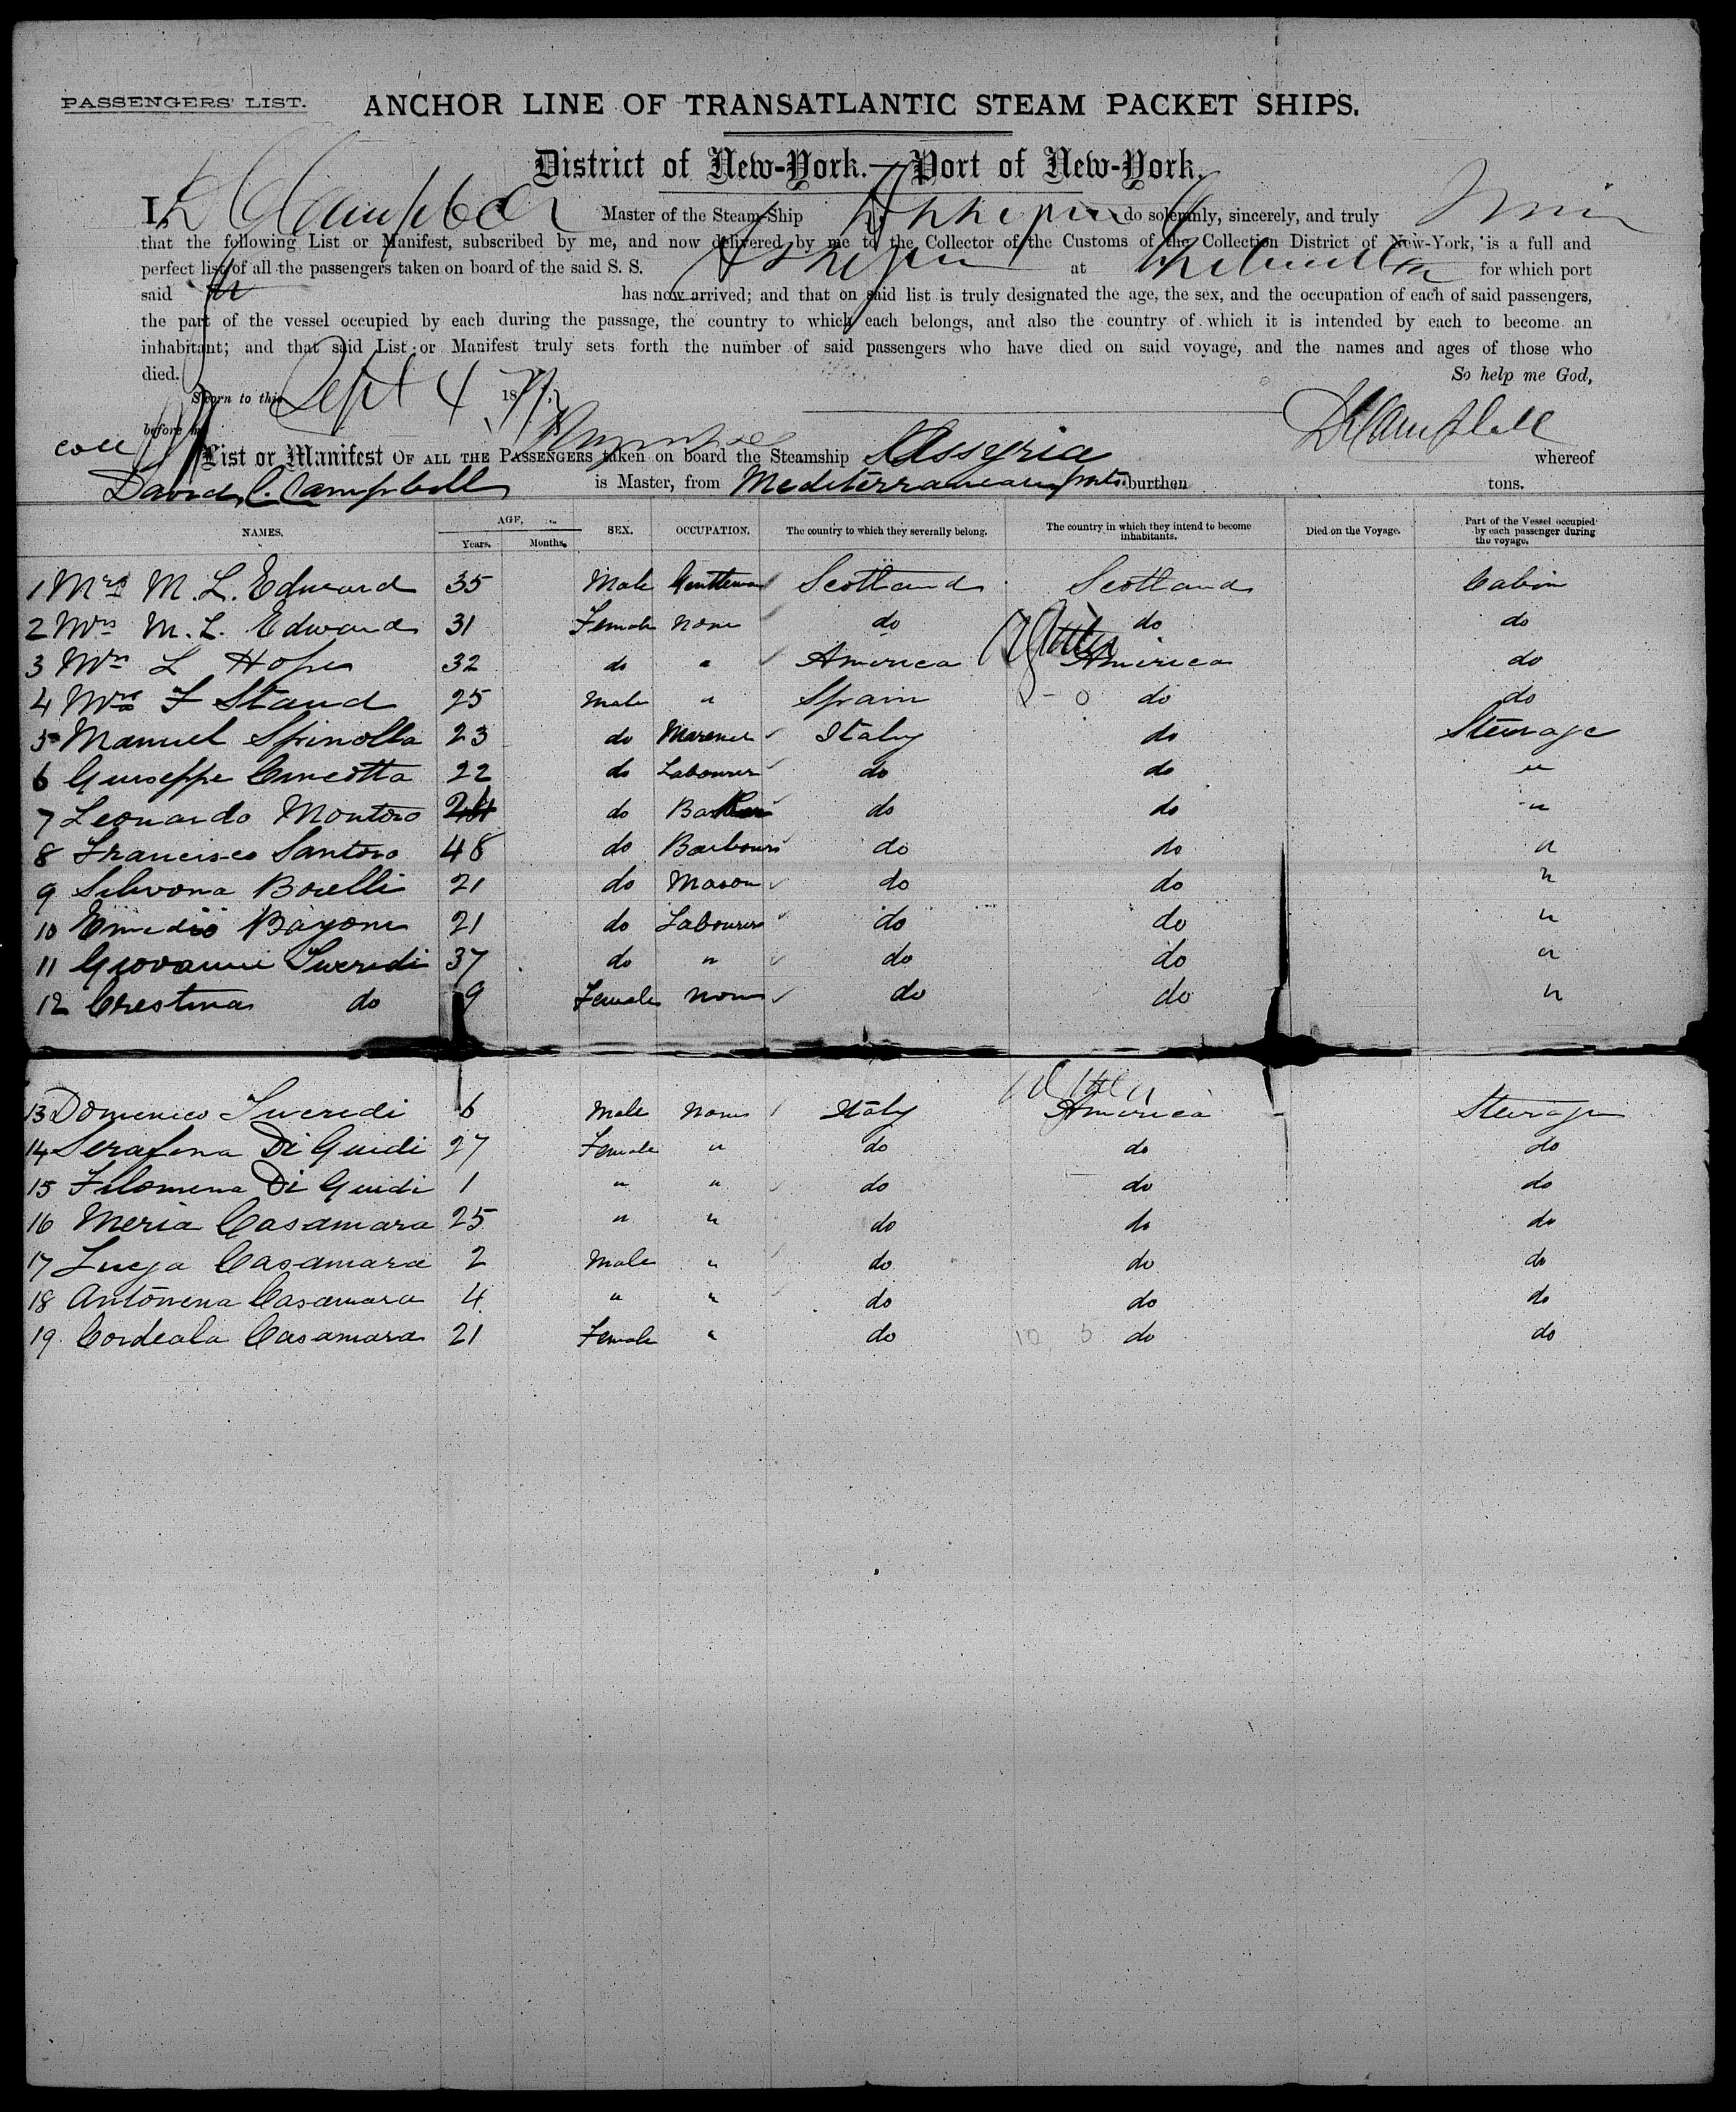 PASSENGERS' LIST. ANCHOR LINE OF TRANSATLANTIC STEAM PACKET SHIPS.
District of New-York.—Port of New-York.
I, D C Campbell Master of the Steam-Ship do solemnly, sincerely, and truly
that the following List or Manifest, subscribed by me, and now delivered by me to the Collector of the Customs of the Collection District of New-York, is a full and
perfect list of all the passengers taken on board of the said S. S. at for which port
said has now arrived; and that on said list is truly designated the age, the sex, and the occupation of each of said passengers,
the part of the vessel occupied by each during the passage, the country to which each belongs, and also the country of which it is intended by each to become an
inhabitant; and that said List or Manifest truly sets forth the number of said passengers who have died on said voyage, and the names and ages of those who
died. So help me God,
Sworn to this Sept 4 18
before me D C Campbell
List or Manifest OF ALL THE PASSENGERS taken on board the Steamship Assyria whereof
David C. Campbell is Master, from Mediterranean ports burthen tons.
NAMES. AGE. Years. Months. SEX. OCCUPATION. The country to which they severally belong. The country in which they intend to become inhabitants. Died on the Voyage. Part of the Vessel occupied by each passenger during the voyage.
1 M. L. Edward 35 Male Gentleman Scotland Scotland Cabin
2 Mrs M. L. Edward 31 Female None do do do
3 L Hope 32 do " America America do
4 F Stand 25 Male " Spain do do
5 Manuel Spinolla 23 do Marener Italy do Steurage
6 Guiseppe Cincotta 22 do Labourer do do "
7 Leonardo Montoro do do do "
8 Francisco Santoro 48 do Barbour do do "
9 Silvona Borelli 21 do Mason do do "
10 Emedio Bayone 21 do Labourer do do "
11 Giovanni Sweredi 37 do " do do "
12 Crestina do 9 Female None do do "
13 Domenico Sweredi 6 Male None Italy America Steurage
14 Serafena Di Guidi 27 Female " do do do
15 Filomena Di Guidi 1 " " do do do
16 Meria Casamara 25 " " do do do
17 Lueja Casamara 2 Male " do do do
18 Antonena Casamara 4 " " do do do
19. Cordeala Casamara 21 Female " do do do